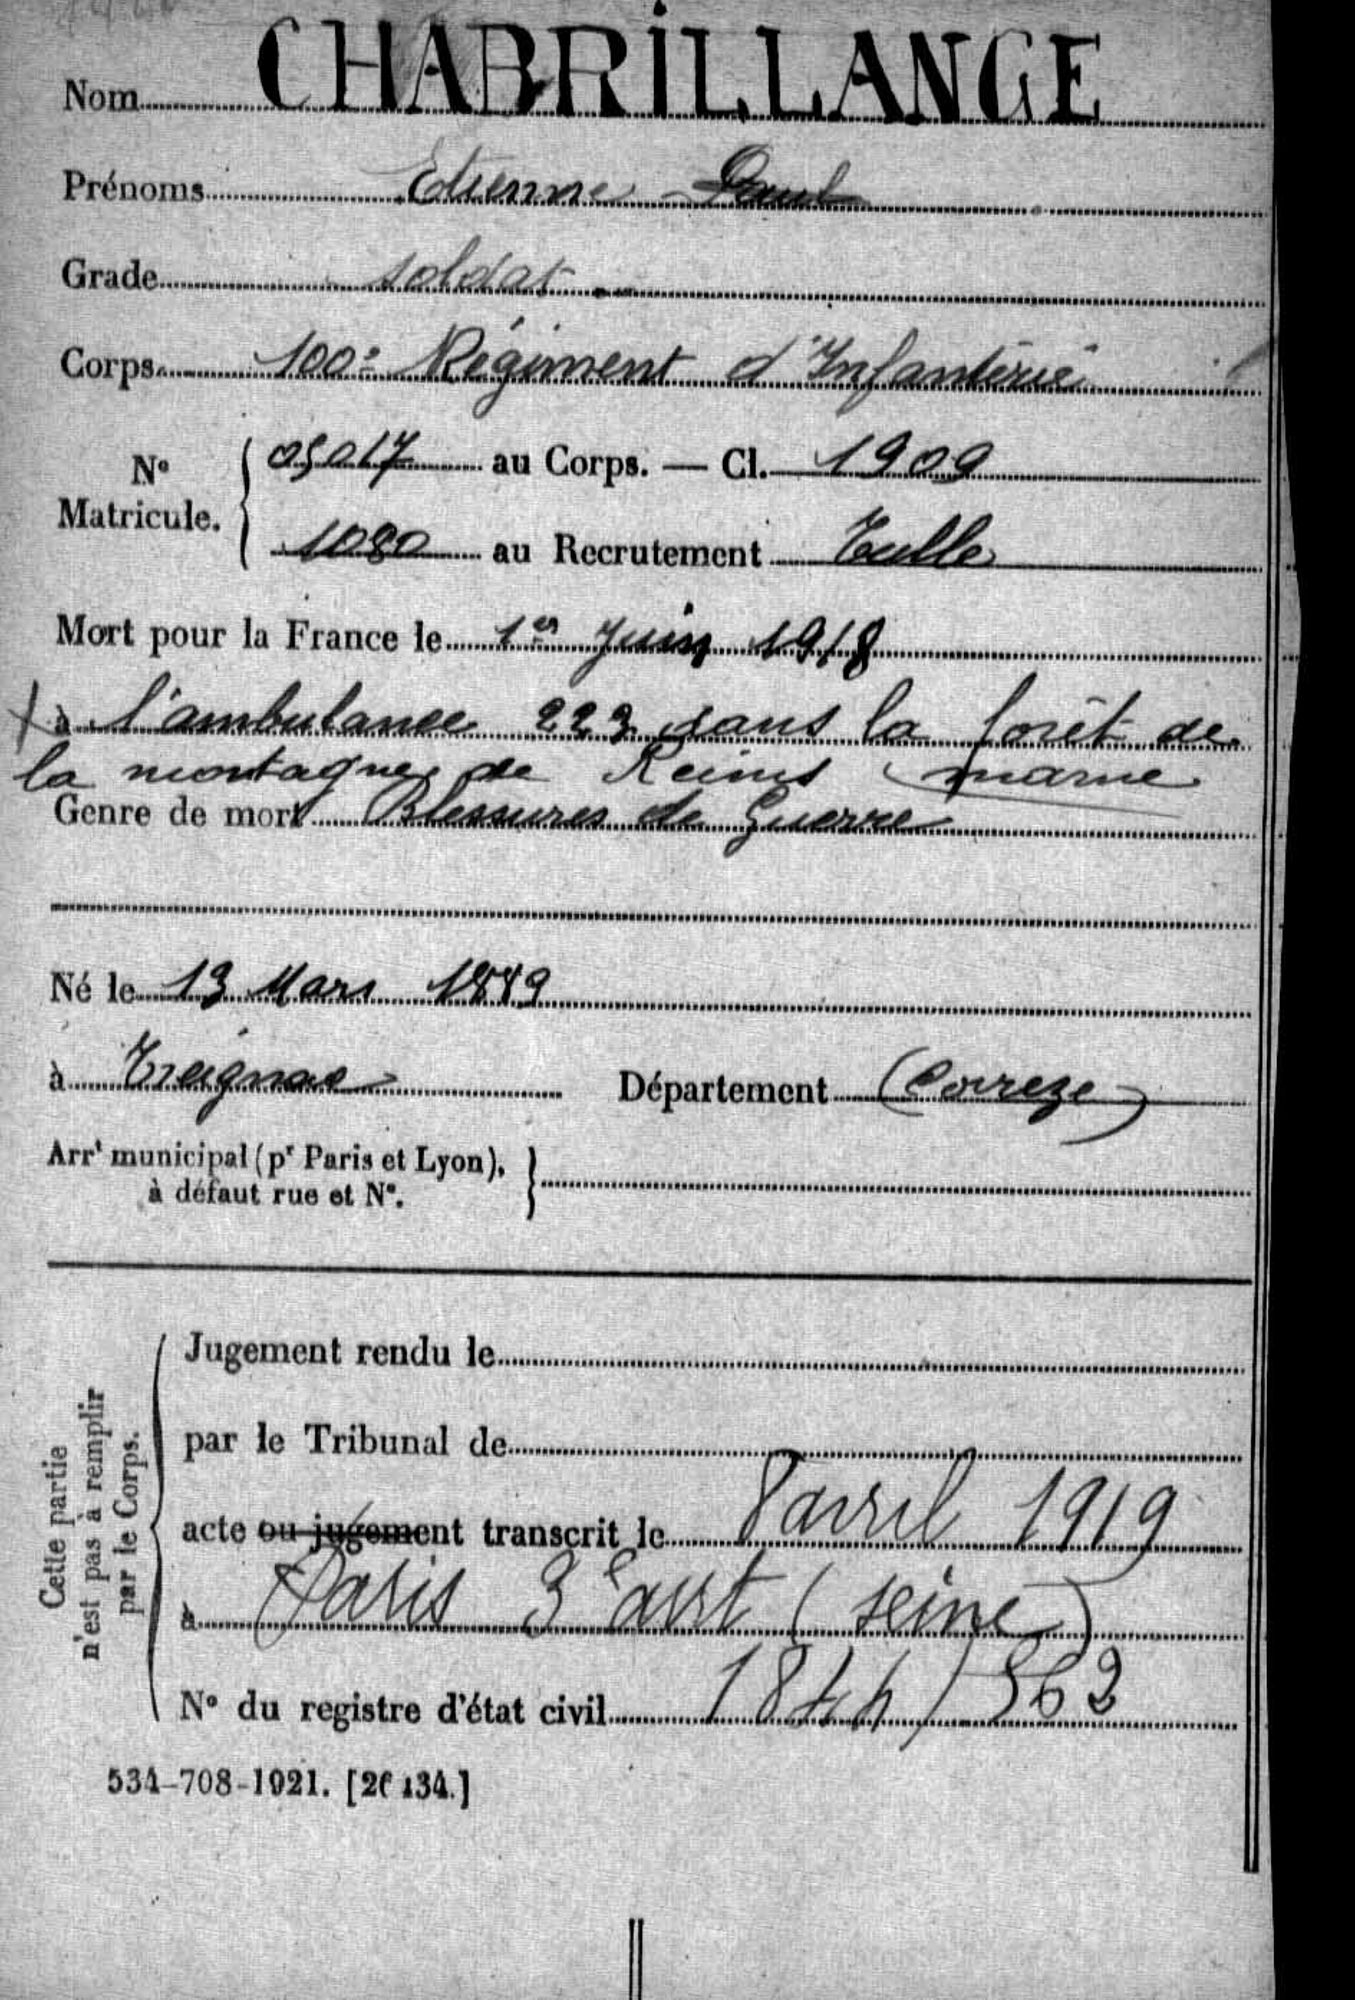 Nom CHABRILLANGE
Prénoms Etienne - Paul
Grade soldat
Corps 100e Régiment d'Infanterie
No Matricule. { 05017 au Corps. — Cl. 1909
1080 au Recrutement Tulle
Mort pour la France le 1er Juin 1918
à l'ambulance 223 dans la forêt de
la montagne de Reims marne
Genre de mort Blessures de Guerre
Né le 13 Mars 1889
à Treignac Département (Correze)
Arrt municipal (pr Paris et Lyon),
à défaut rue et No.
Cette partie
n'est pas à remplir
par le Corps.
Jugement rendu le
par le Tribunal de
acte ou jugement transcrit le 8 avril 1919
à Paris 3e arrt (seine)
No du registre d'état civil 1844/563
534-708-1921. [26434.]